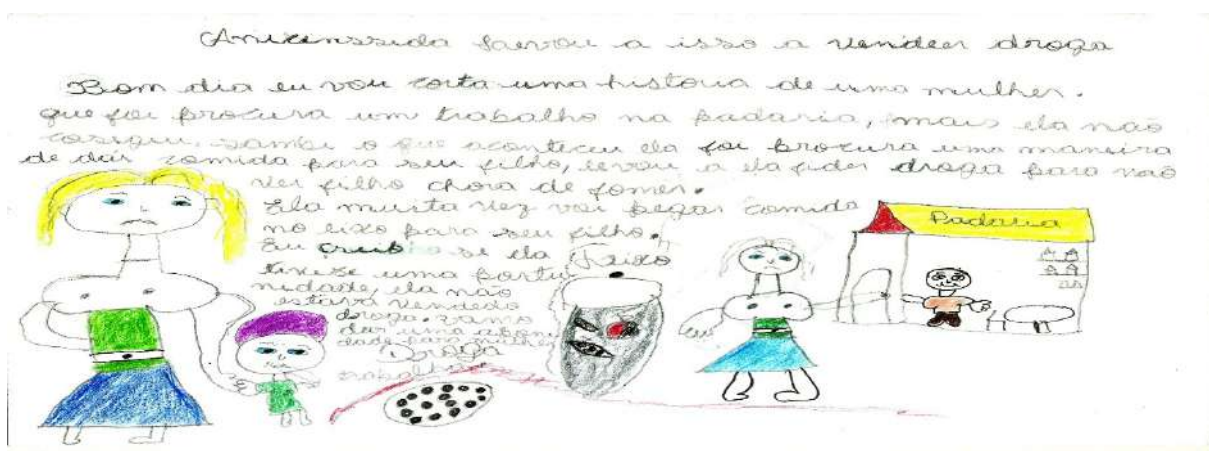 Anicenssida laevou a isso a vender droga
Bom dia eu vou conta uma historia de uma mulher.
que foi procura um trabalho na padaria, mais ela não
cosigiu, sambi o que aconteceu ela foi procura uma maneira
de dar comida para seu filho, levou a ela fider droga para não
ver filho chora de fomer.
Ela muita vez vai pegar comida
no lixo para seu filho.
Eu
se ela
tivese uma portu
nidade, ela não
estava vendedo
droga. vamo
dar uma
dade para mulher
trabalha
Droga
Padaria